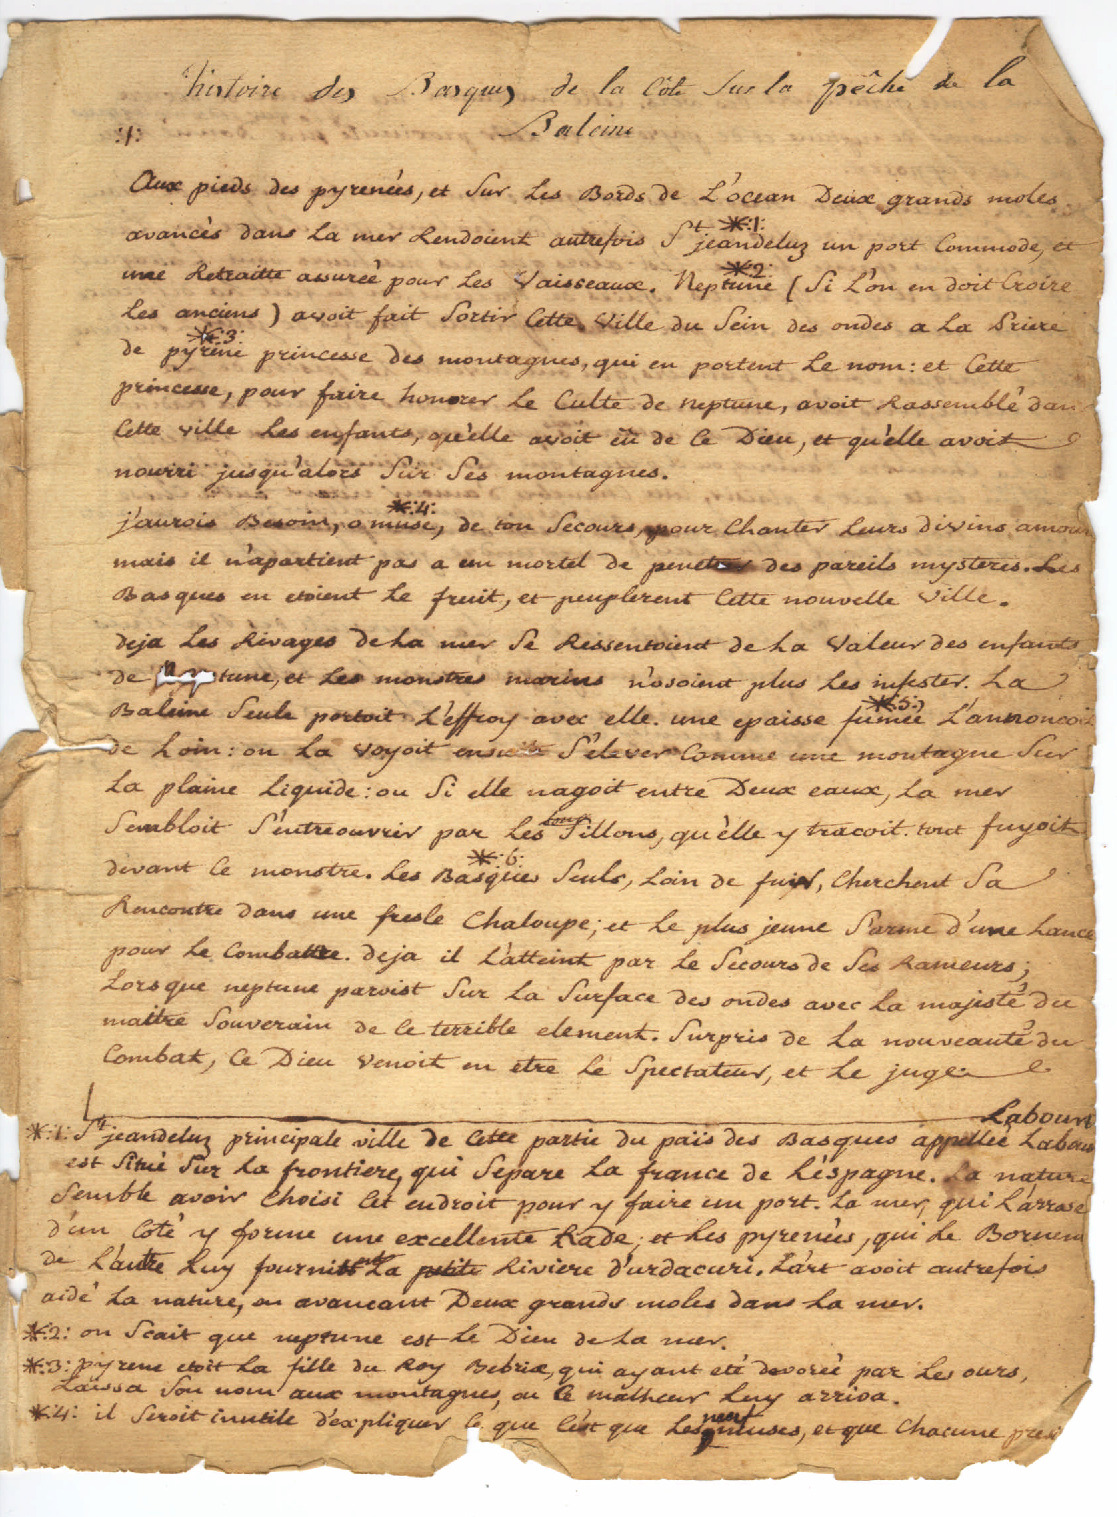 histoire des Basques de la Côte Sur la pêche de la
Baleine
:1:
Aux pieds des pyrenées, et Sur Les Bords de L'ocean Deux grands moles
avancès dans La mer Rendoient autrefois St jeandeluz *:1: un port Commode, et
une Retraitte assureé pour Les Vaisseaux. Neptune *:2: ( Si L'on en doit Croire
Les anciens ) avoit fait Sortir Cette Ville du Sein des ondes a La Priere
de pyrene *:3: princesse des montagnes, qui en portent Le nom: et Cette
princesse, pour faire honorer Le Culte de neptune, avoit Rassemblé dan
Cette ville Les enfants, qu'elle avoit eü de Ce Dieu, et qu'elle avoit
nourri jusqu'alors Sur Ses montagnes.
j'aurois Besoin, o muse *:4:, de ton Secours, pour Chanter Leurs divins amour
mais il n'apartient pas a un mortel de des pareils mysteres. Les
Basques en etoient Le fruit, et peuplerent Cette nouvelle Ville.
deja Les Rivages de La mer Se Ressentoient de La Valeur des enfants
de neptune, et Les monstres marins n'osoient plus Les infester. La
Baleine Seule portoit L'effroy avec elle. une epaisse fumée *:5: L'annoncoit
de Loin: on La voyoit ensuite S'elever Comme une montagne Sur
La plaine Liquide: ou Si elle nagoit entre Deux eaux, La mer
Sembloit S'entreouvrir par Les longs Sillons, qu'elle y tracoit. tout fuyoit
devant Ce monstre. Les Basques *:6: Seuls, Loin de fuir, Cherchent Sa
Rencontre dans une fresle Chaloupe; et Le plus jeune S'arme d'une Lance
pour Le Combattre. deja il L'atteint par Le Secours de Ses Rameurs;
Lorsque neptune paroist Sur La Surface des ondes avec La majesté du
maitre Souverain de Ce terrible element. Surpris de La nouveauté du
Combat, Ce Dieu Venoit en etre Le Spectateur, et Le juge.
Labourt
*:1: St jeandeluz principale ville de Cette partie du païs des Basques appellée Labour
est Situé Sur La frontiere, qui Separe La france de L'éspagne. La nature
Semble avoir Choisi Cet endroit pour y faire un port. La mer, qui L'arrase
d'un Coté y forme une excellente Rade; et Les pyrenées, qui Le Bornent
de L'autre Luy fournit La petite Riviere d'urdacuri. L'art avoit autrefois
aidé La nature, en avancant Deux grands moles dans La mer.
*:2: on Scait que neptune est Le Dieu de La mer.
*:3: pyrene etoit La fille du Roy Bebrix, qui ayant eté devoreé par Les ours,
Laissa Son nom aux montagnes, ou Ce malheur Luy arriva.
*:4: il Seroit inutile d'expliquer Ce que C'est que Les neuf muses, et que Chacune presi